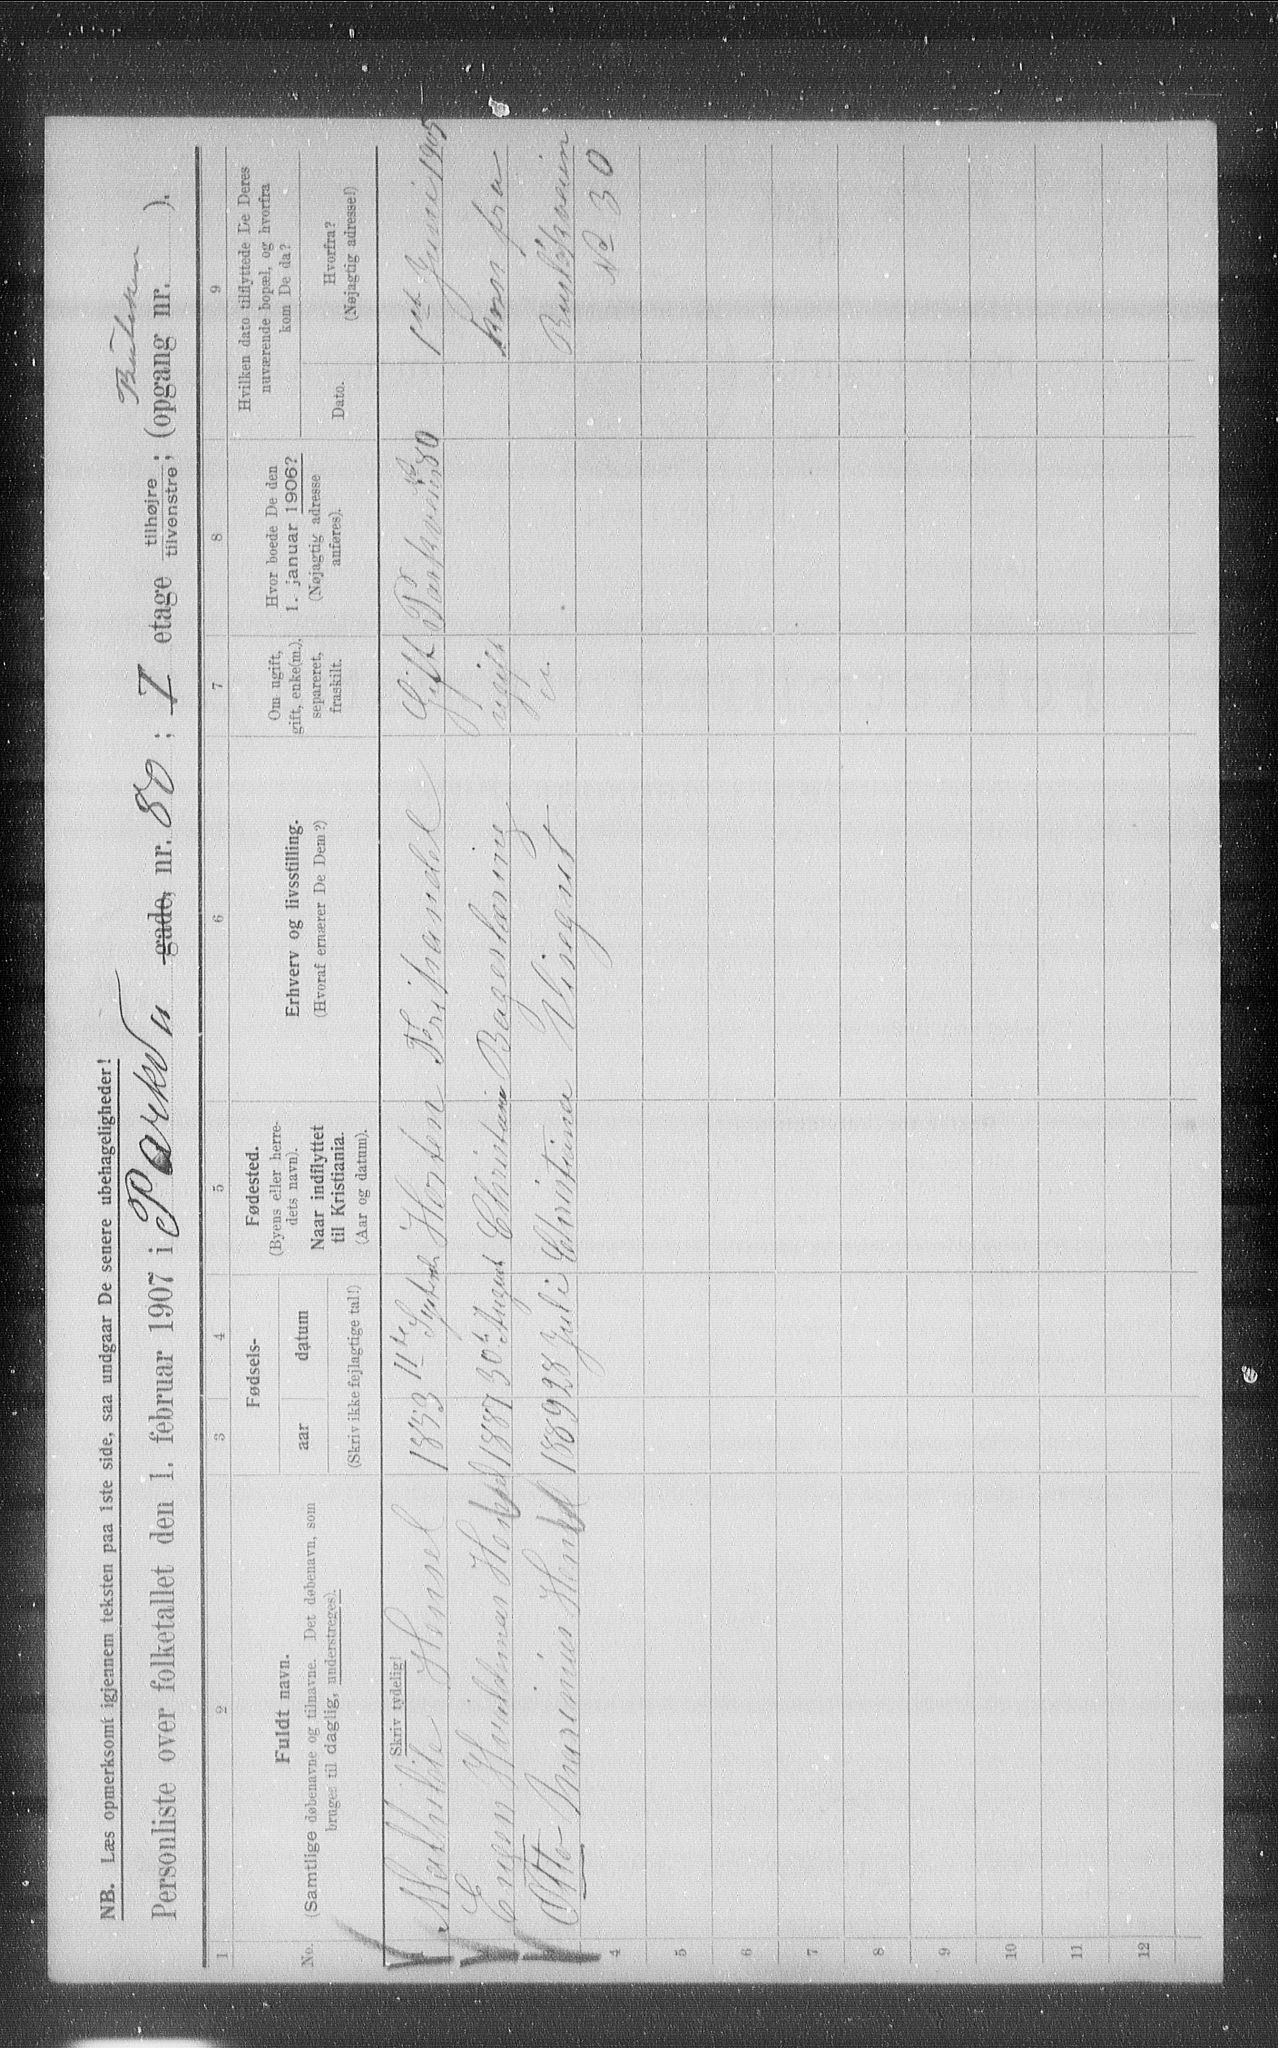 NB. Læs opmerksomt igjennem teksten paa 1ste side, saa undgaar De senere ubehageligheder!
Butiken
Personliste over folketallet den 1. februar 1907 i Parkv gade, nr. 80; I etage tilhøjre tilvenstre; (opgang nr. ).
1 2 3 4 5 6 7 8 9
No.
Fuldt navn.
(Samtlige døbenavne og tilnavne. Det døbenavn, som bruges til daglig, understreges).
Fødsels-
aar
datum
(Skriv ikke fejlagtige tal!)
Fødested.
(Byens eller herredets navn).
Naar indflyttet til Kristiania.
(Aar og datum).
Erhverv og livsstilling.
(Hvoraf ernærer De Dem?)
Om ugift, gift, enke(m.), separeret, fraskilt.
Hvor boede De den 1. januar 1906?
(Nøjagtig adresse anføres).
Hvilken dato tilflyttede De Deres nuværende bopæl, og hvorfra kom De da?
Dato.
Hvorfra?
(Nøjagtig adresse!)
Skriv tydelig!
1 Mathilde Hensel 1853 11te Septbr Horten Gift Parkvein No 80 1st Juni 1905
2 Hensel 1887 30te August Christiania ugift kom fra
3 Otto Hensel 1889 28 Juli Christiania Visergut
No 30
4
5
6
7
8
9
10
11
12